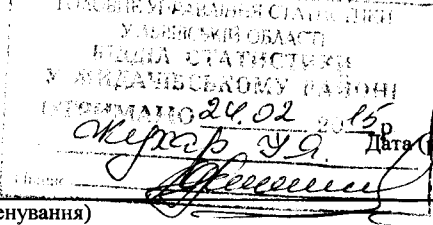 ГОЛОВНЕ УПРАВЛІННЯ СТАТИСТИКИ
У ЛЬВІВСЬКІЙ ОБЛАСТІ
ВІДДІЛ СТАТИСТИКИ
У ЖИДАЧІВСЬКОМУ РАЙОНІ
ОТРИМАНО 24.02 2015р
Жухар У Я. Дата (
Підпис
енування)